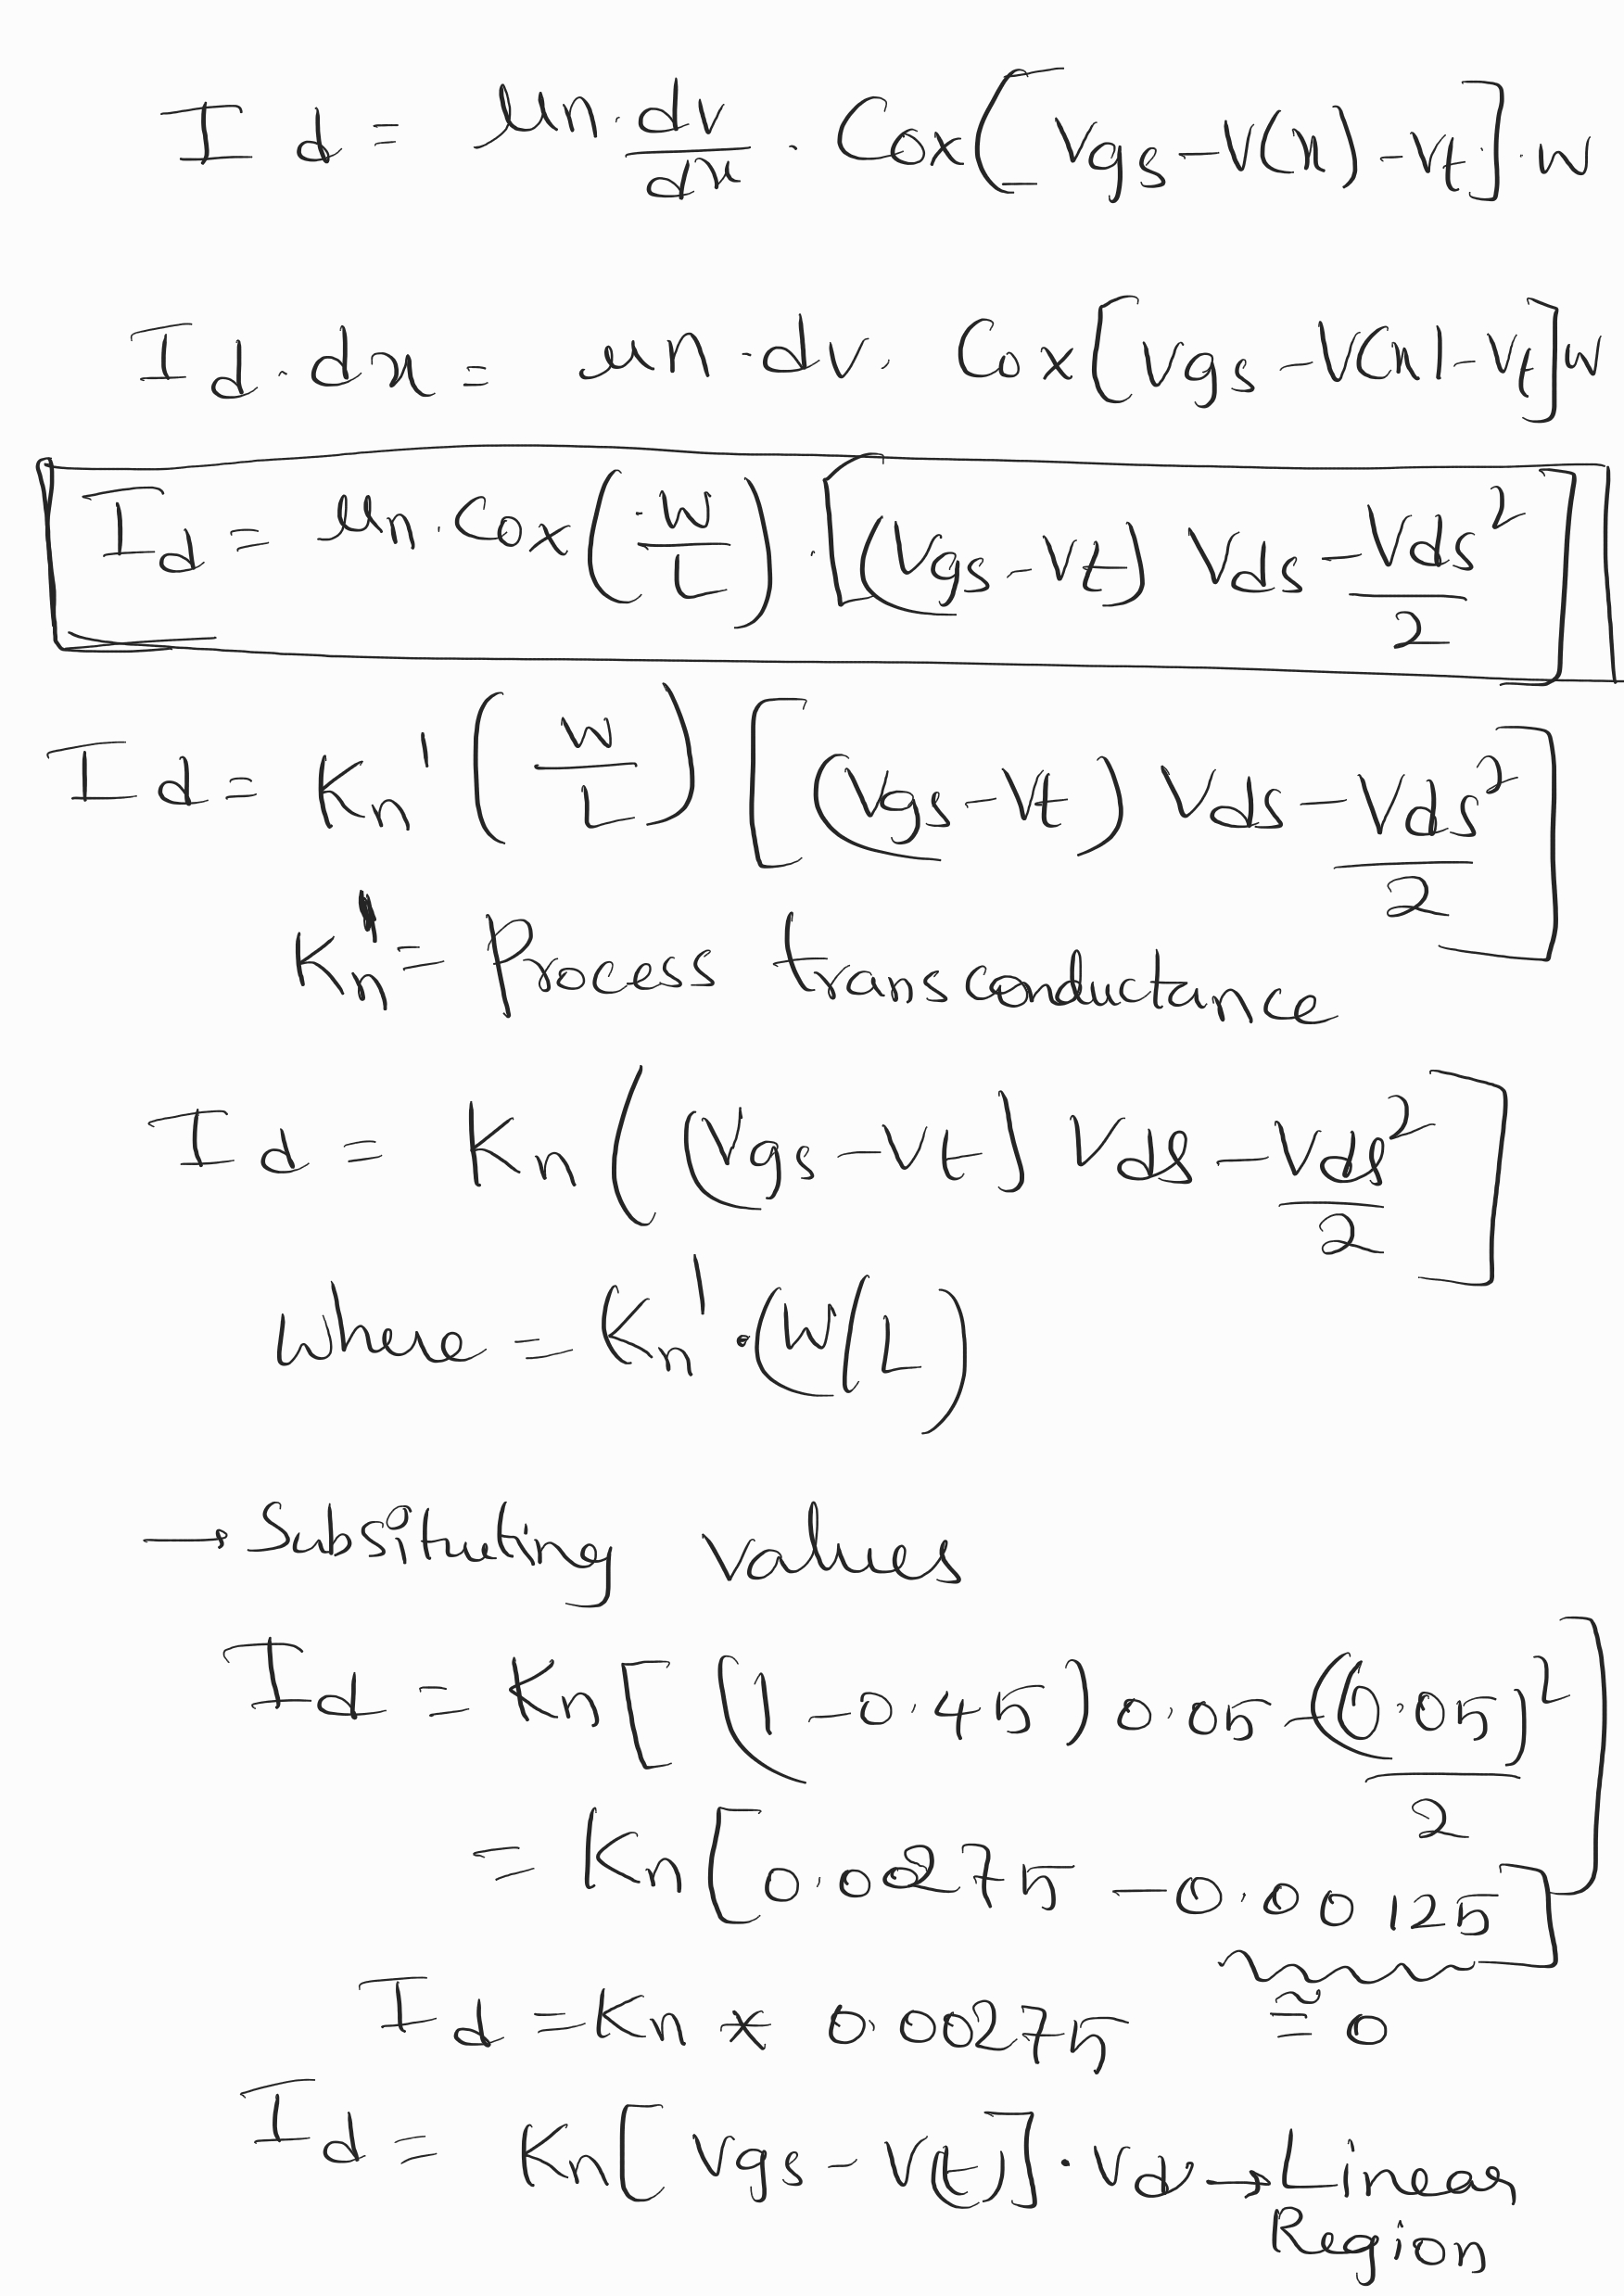 Id = μn · dv/dx · Cox[Vgs - V(x) - Vt] · W
Id · dx = μn · dv · Cox[Vgs - V(x) - Vt] W
Id = μn · Cox (W/L) · [(Vgs - Vt) Vds - Vds²/2]
Id = Kn' (W/L) [(Vgs - Vt) Vds - Vds²/2]
Kn' = Process transconductance
Id = Kn ((Vgs - Vt) Vds - Vds²/2]
Where = Kn' · (W/L)
→ Subsituting values
Id = Kn [(1 - 0.45) 0.05 - (0.05)²/2]
= Kn [0.0275 - 0.00125]
≅ 0
Id = Kn * 0.00275
Id = Kn [Vgs - Vt)] · Vds → Linear
Region